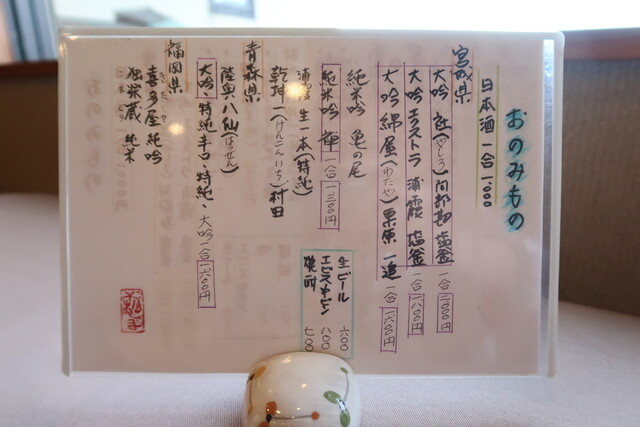 おのみもの
日本酒 一合 1000
宮城県
大吟 (やしろ) 阿部勘 塩釜 一合 2000円
大吟 エクストラ 浦霞 塩釜 一合 一八〇〇円
大吟 綿屋(わたや) 栗原 一迫 一合 一六〇〇円
純米吟 亀の尾
純米吟 輝 一合 一三〇〇円
浦霞 生一本(特純)
乾坤一(けんこんいち) 村田
青森県
陸奥八仙(はっせん)
大吟、特純辛口、特純、大吟一合一六〇〇円
福岡県
喜多屋 純吟
きたや
独楽蔵 純米
生ビール 六〇〇
ヱビス 八〇〇
焼酎 七〇〇